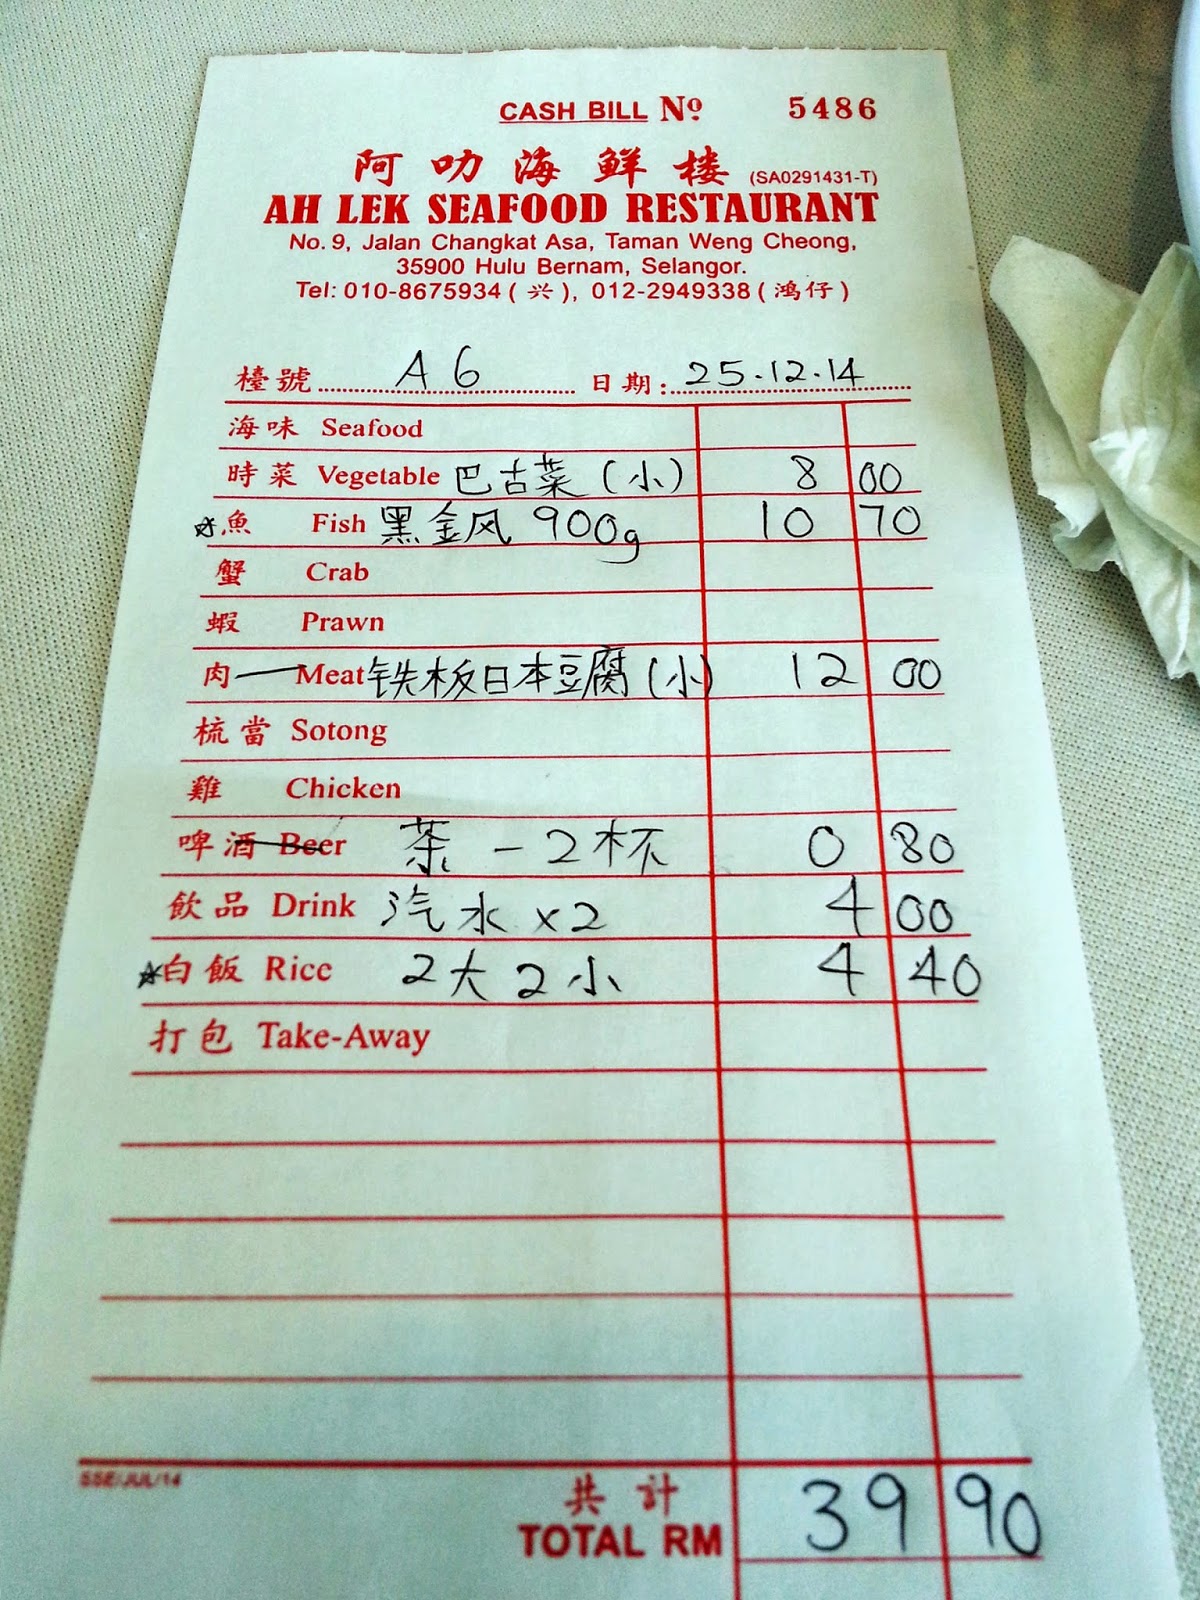 CASH BILL Nº 5486
阿叻海鮮樓 (SA0291431-T)
AH LEK SEAFOOD RESTAURANT
No. 9, Jalan Changkat Asa, Taman Weng Cheong,
35900 Hulu Bernam, Selangor.
Tel: 010-8675934 ( 兴 ), 012-2949338 ( 鴻仔 )
檯號 A6 日期: 25.12.14
海味 Seafood
時菜 Vegetable 巴古菜 (小) 8 00
☆魚 Fish 黑金风 900g 10 70
蟹 Crab
蝦 Prawn
肉 Meat 铁板日本豆腐 (小) 12 00
梳當 Sotong
雞 Chicken
啤酒 Beer 茶 - 2杯 0 80
飲品 Drink 汽水 x2 4 00
☆白飯 Rice 2大2小 4 40
打包 Take-Away
SSE/JUL/14
共計
TOTAL RM 39 90